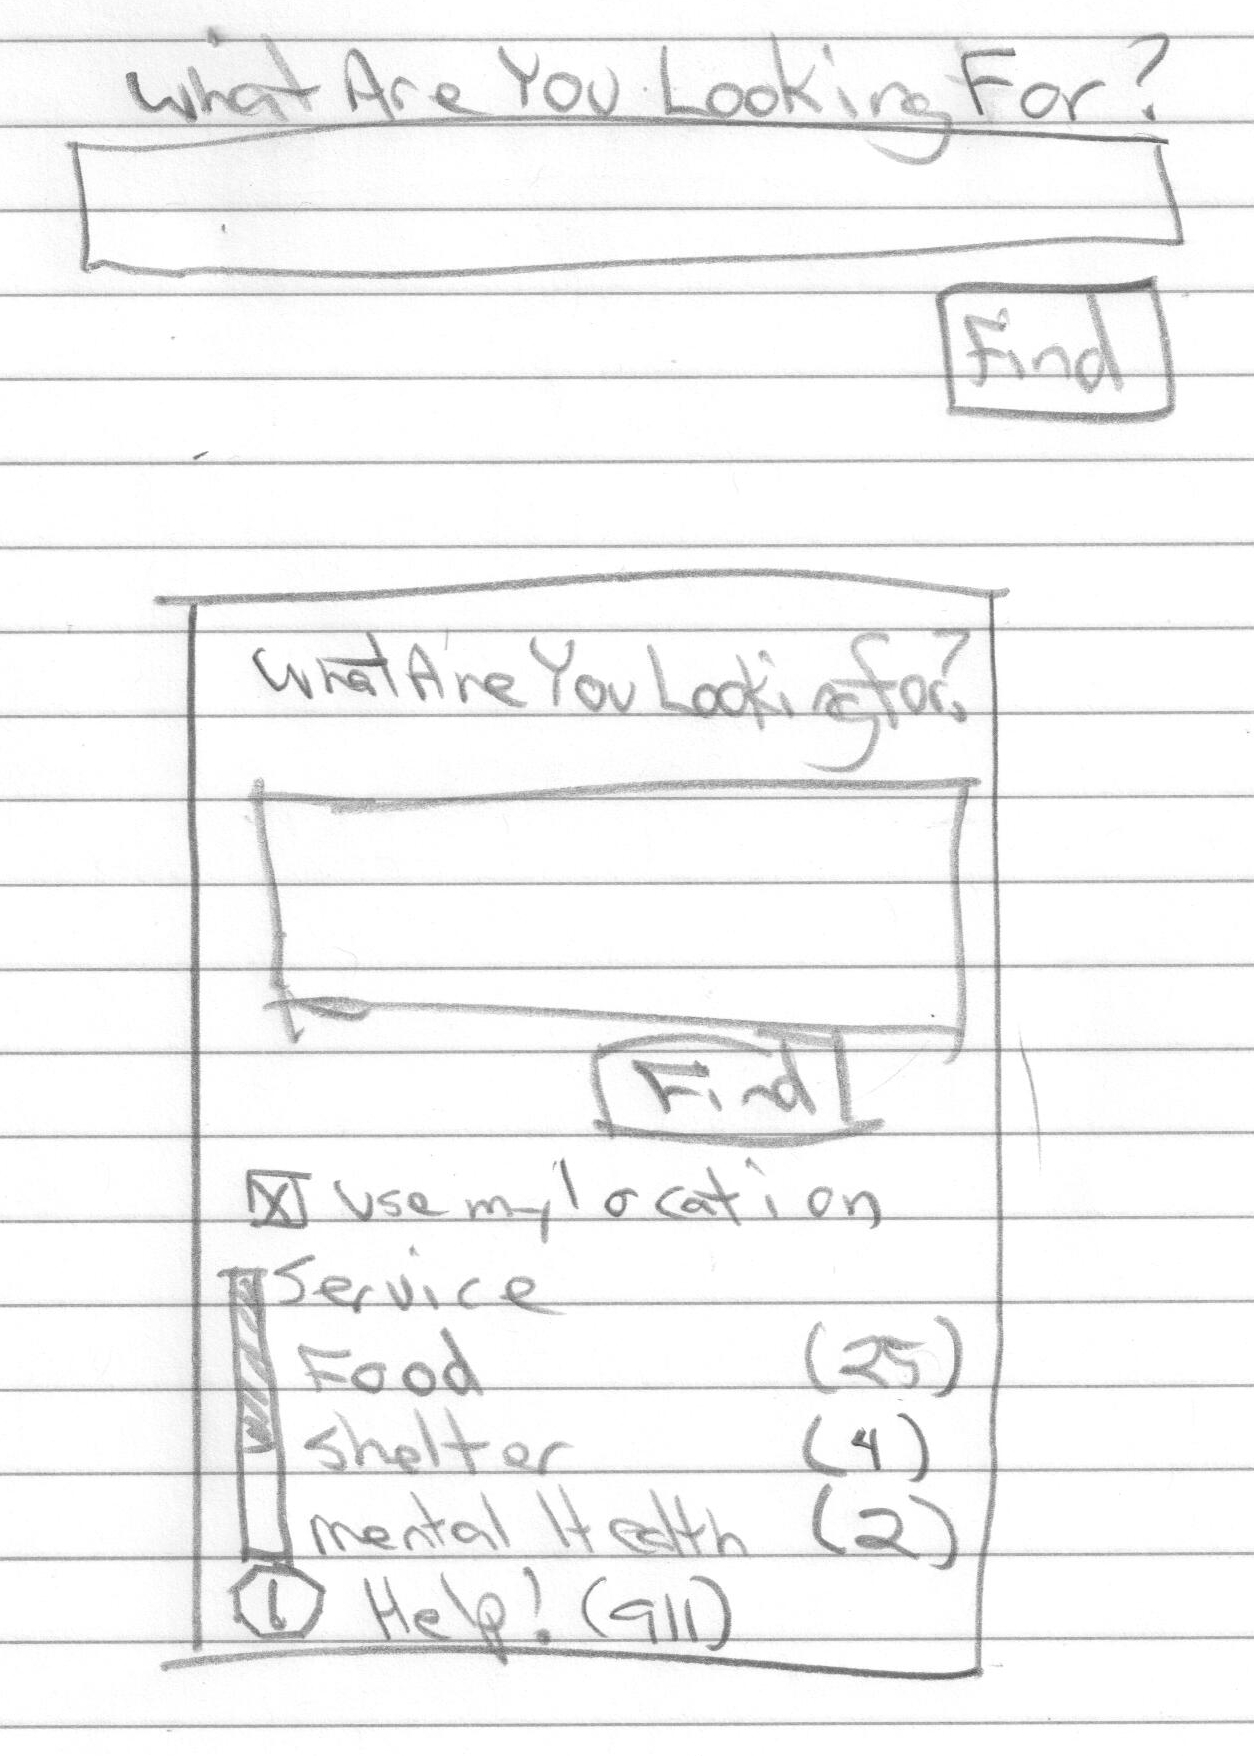 What Are You Looking For?
Find
What Are You Looking for?
Find
X use my location
Service
Food (25)
shelter (4)
mental Health (2)
! Help! (911)